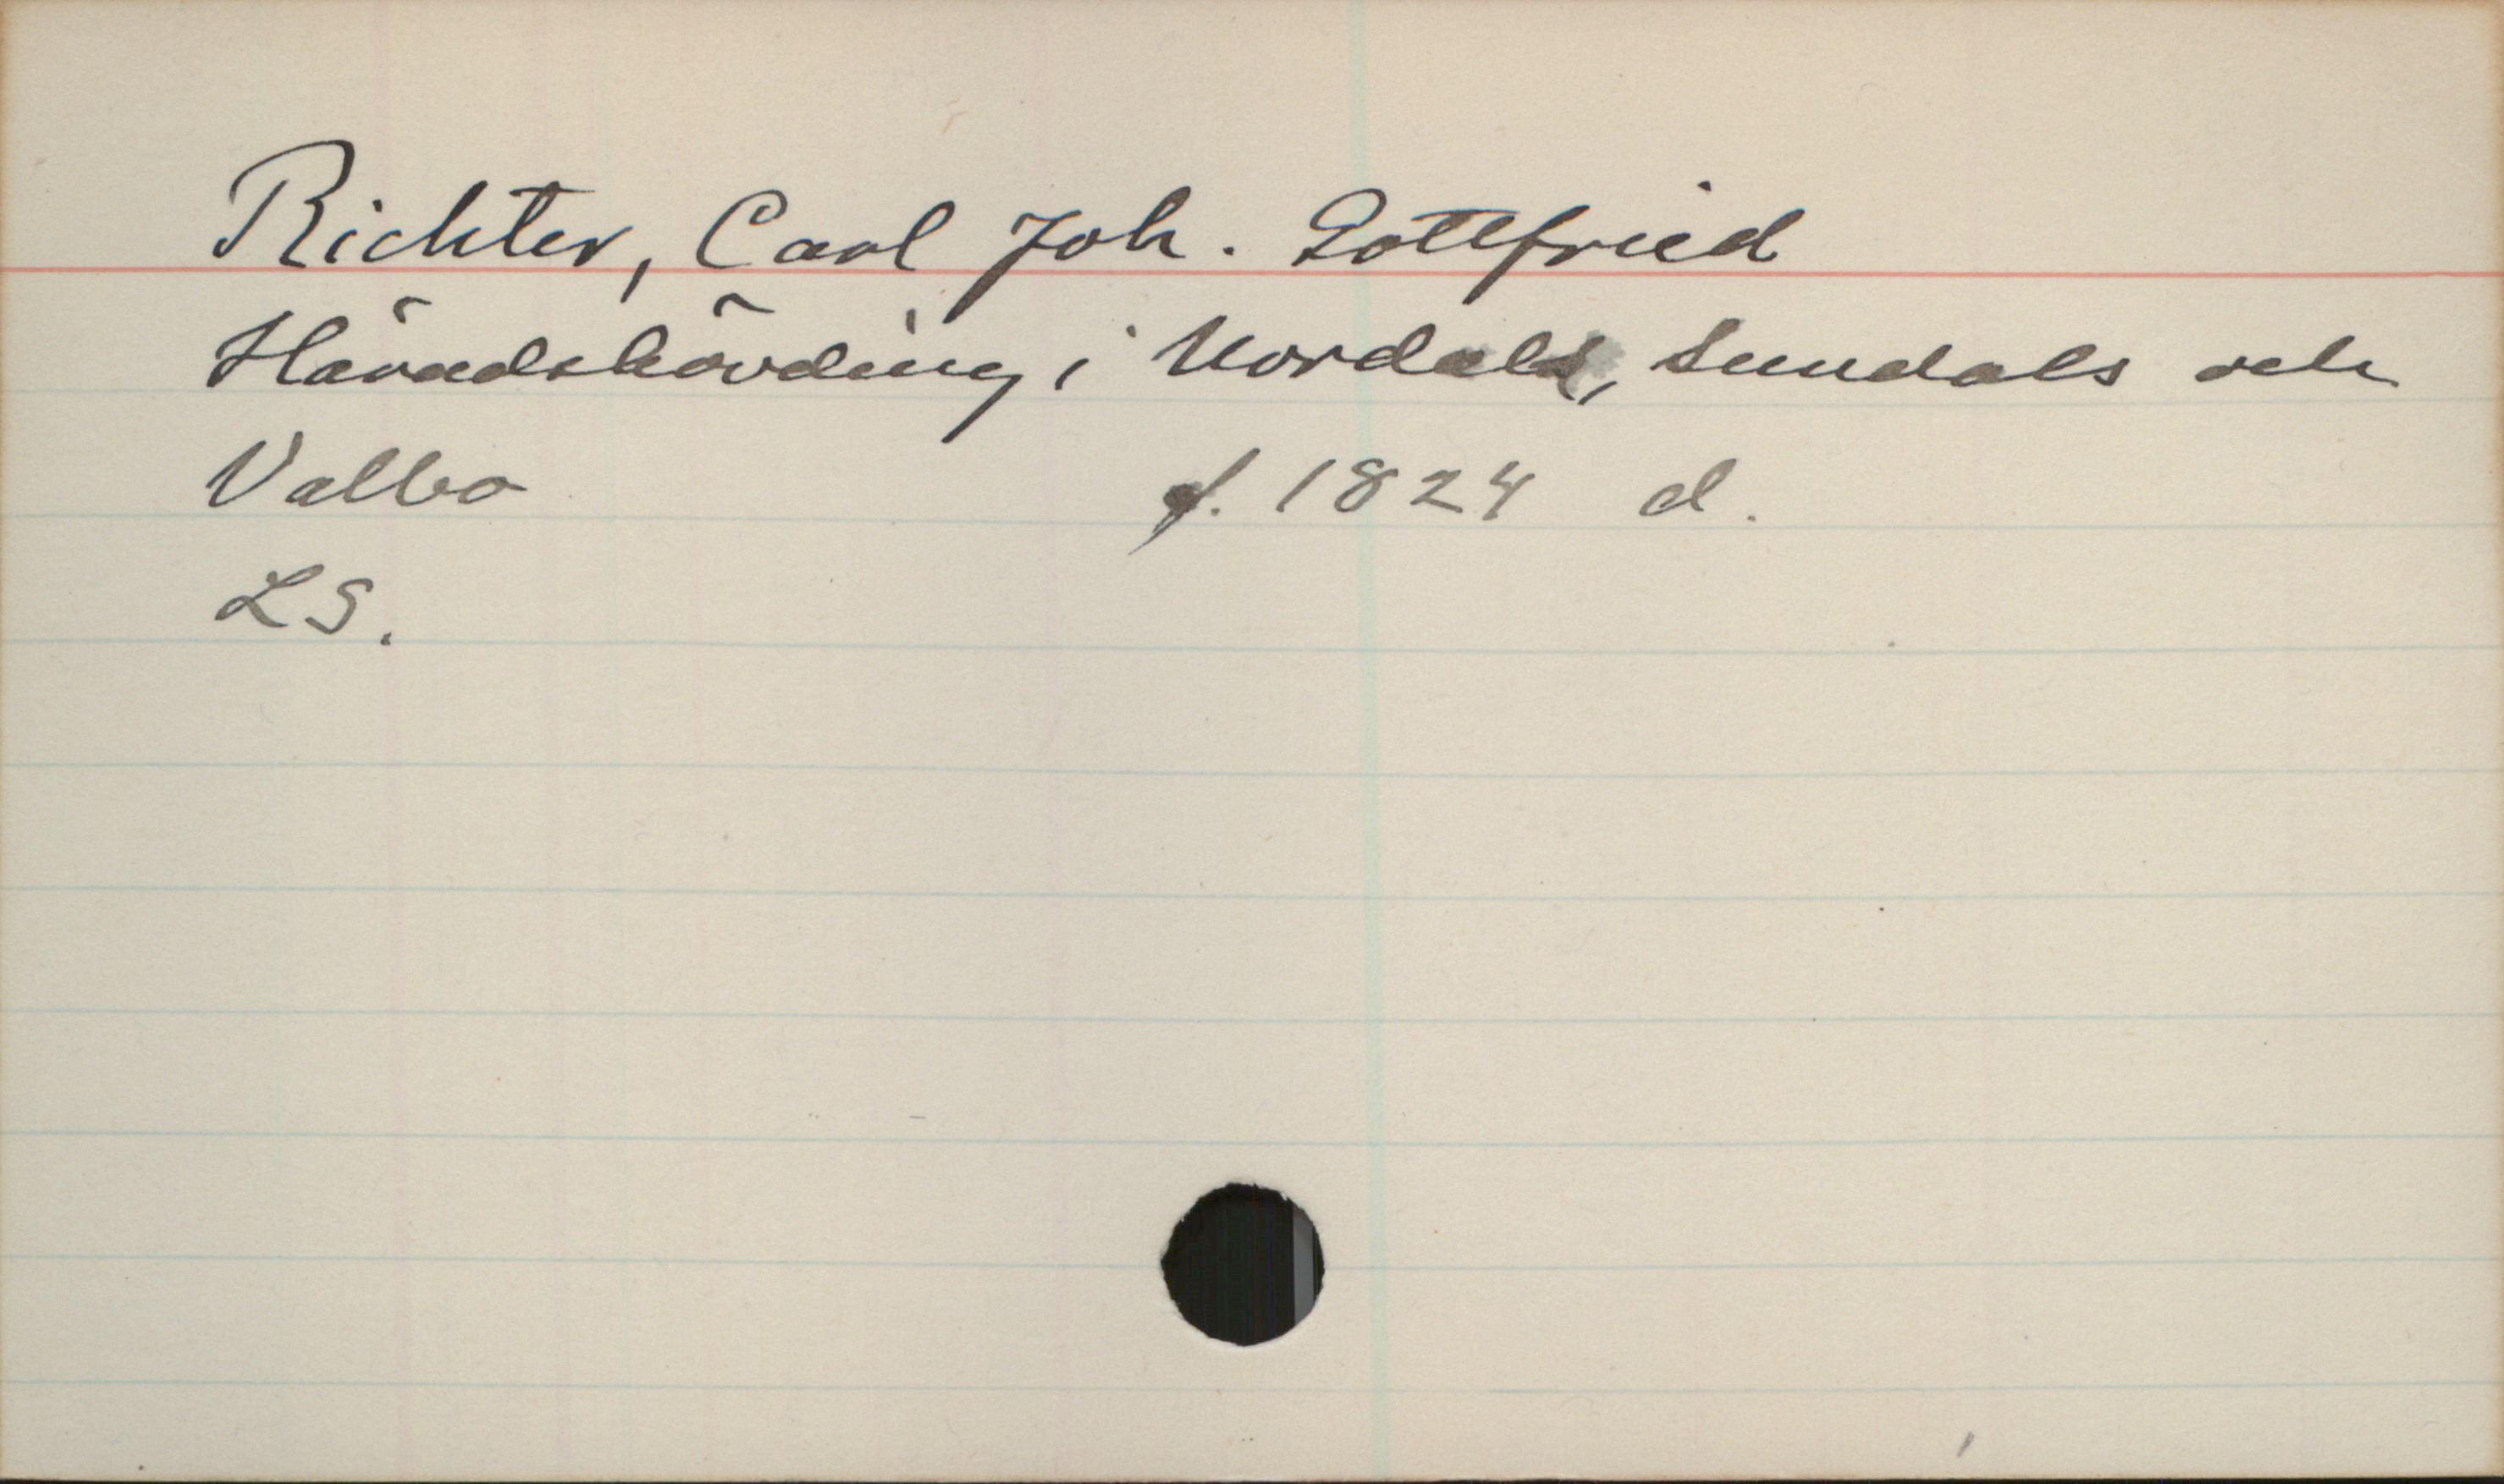 Richter, Carl Joh. Gottfried
Häradshövding i Nordals, Sundals och
Valbo f. 1824 d.
LS.